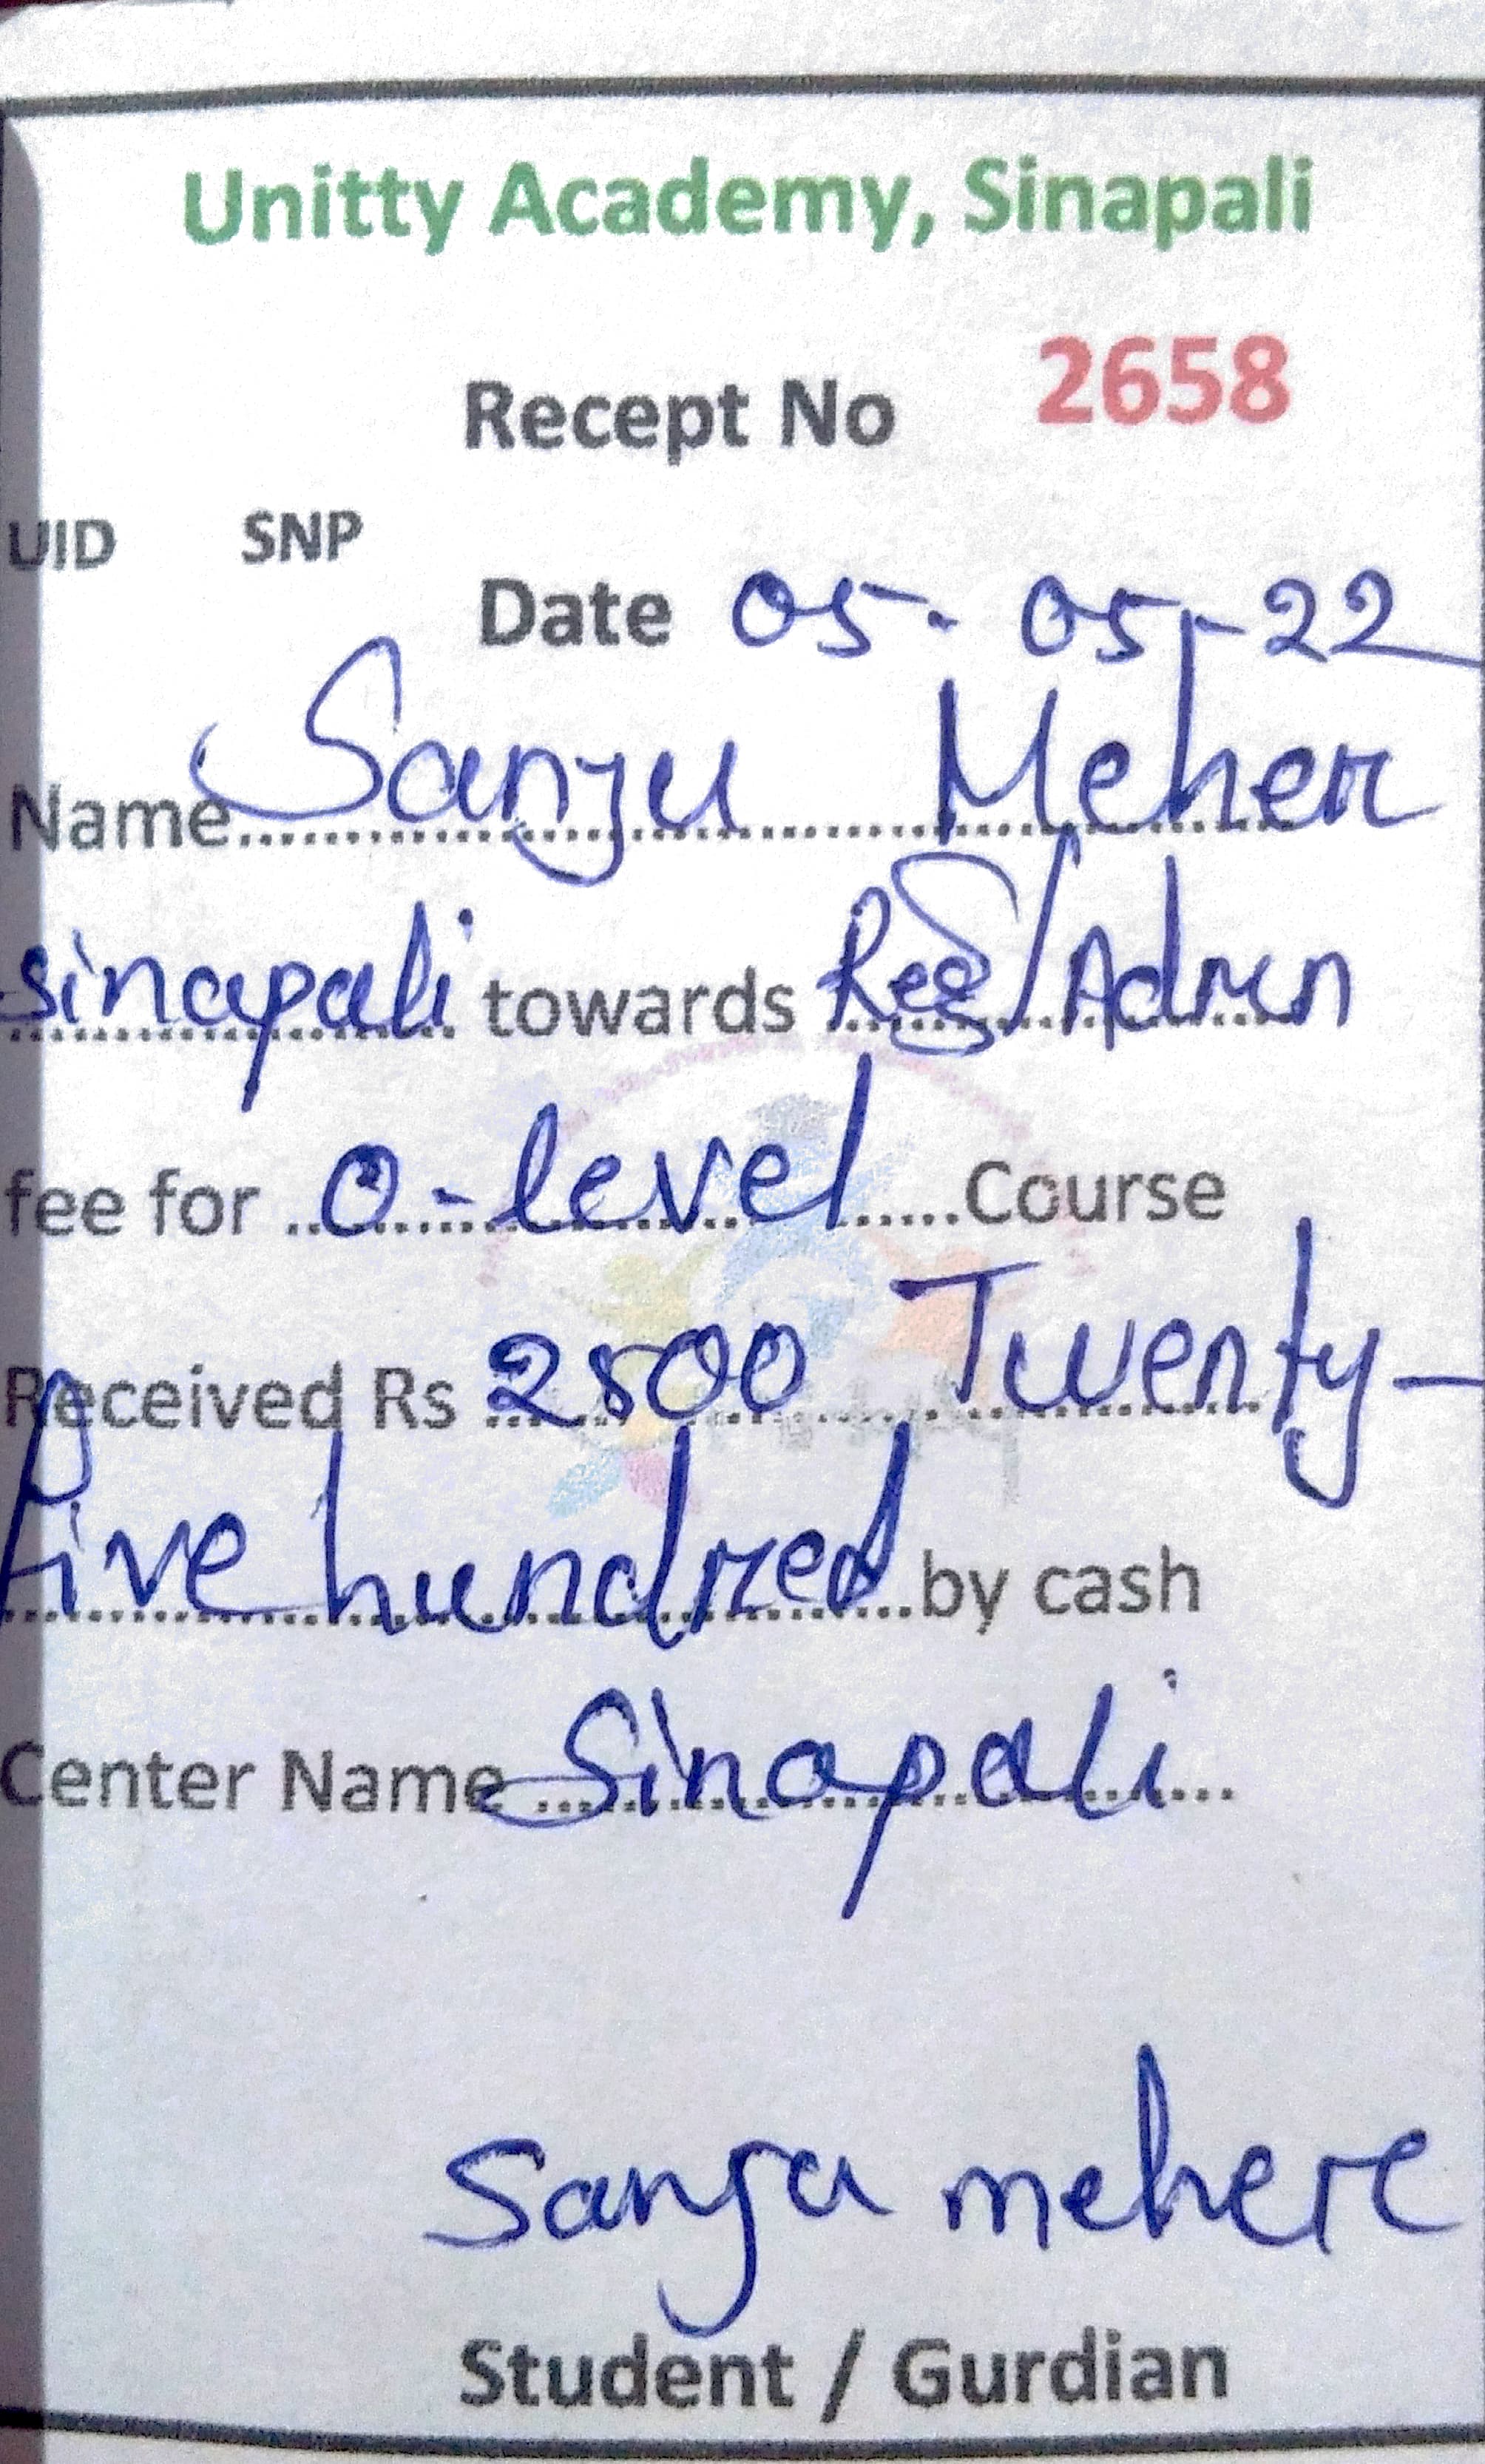 Unitty Academy, Sinapali
Recept No 2658
UID SNP
Date 05-05-22
Name Sanju Meher
sinapali towards Reg/Admn
fee for O-level Course
Received Rs 2500 Twenty-
five hundred by cash
Center Name Sinapali
Sanju meher
Student / Gurdian